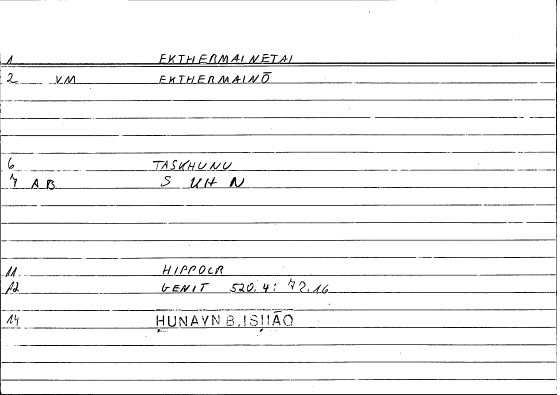 1 EKTHERMAINETAI
2 VM EKTHERMAINŌ
6 TASKHUNU
7 AB S UH N
11 HIPPOCR
12 GENIT 520.4: 72.16
14 ḤUNAYN B. ISḤĀQ